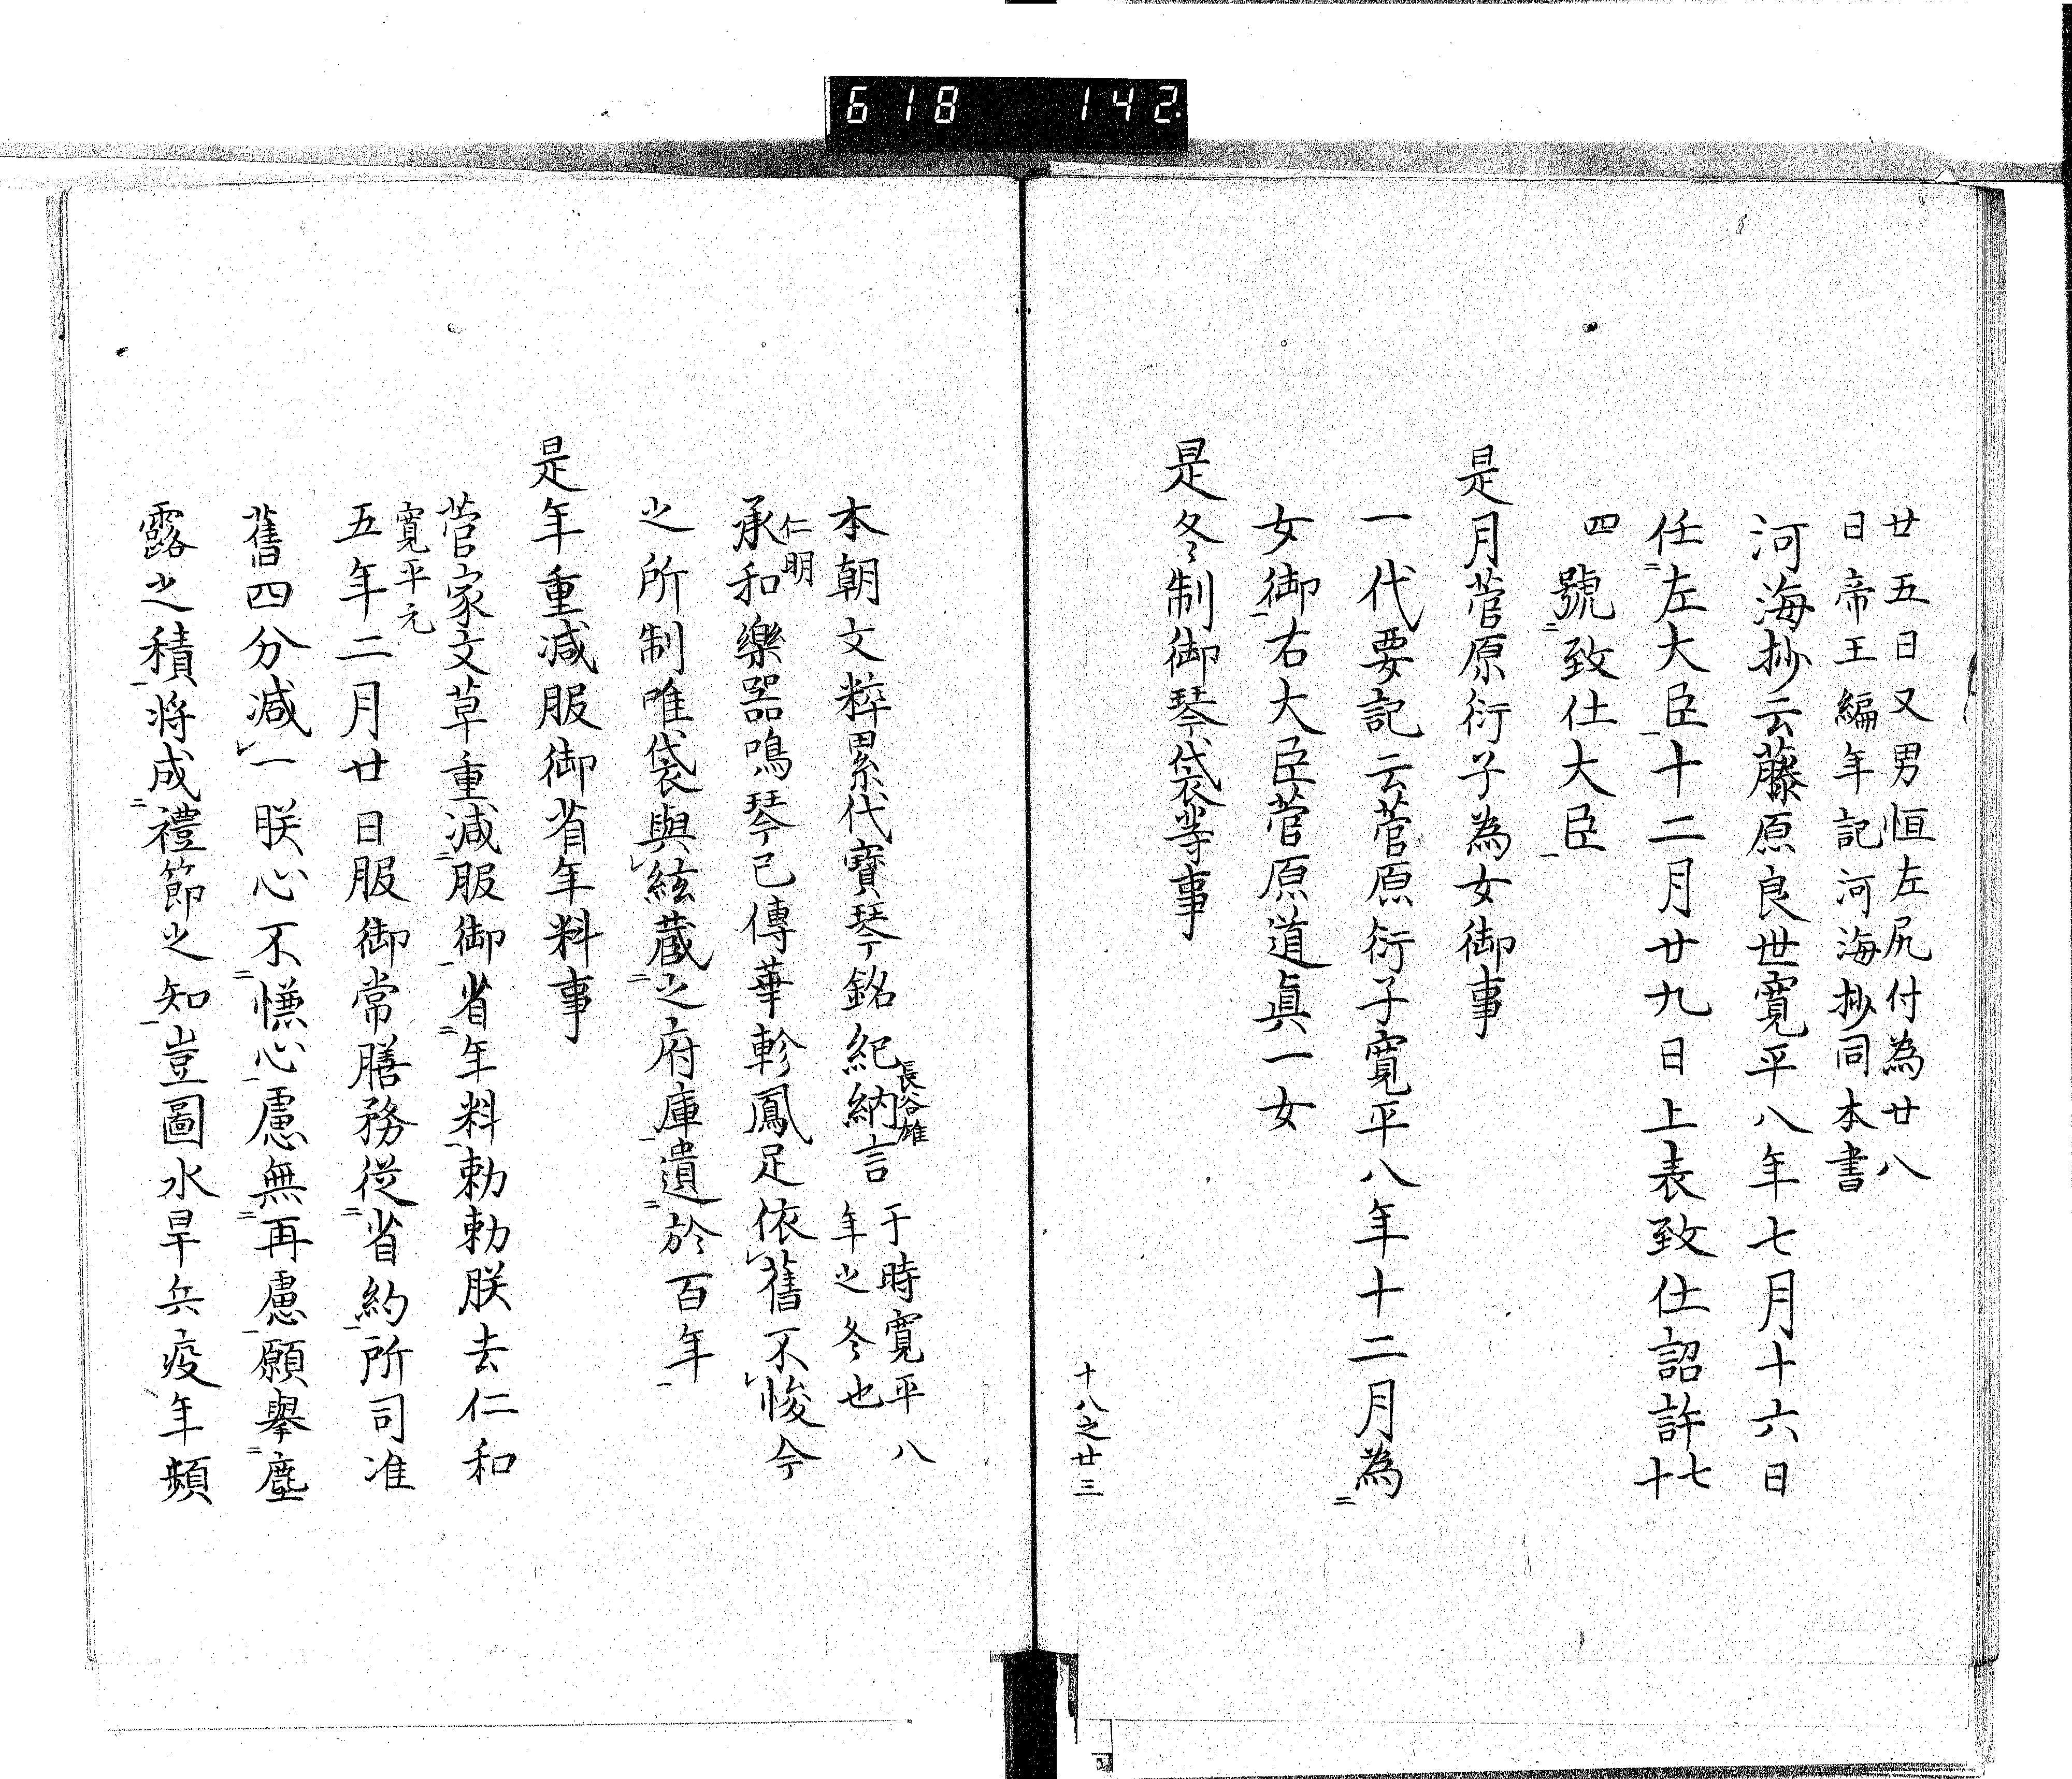 618 142
廿五日又男恒左尻付為廿八
日帝王編年記河海抄同本書
河海抄云藤原良世寛平八年七月十六日
任二左大臣一十二月廿九日上表致仕詔許七十
四號二致仕大臣一
是月菅原衍子為女御事
一代要記云菅原衍子寛平八年十二月為二
女御一右大臣菅原道眞一女
是冬制御琴袋等事
十八之廿三
本朝文粹累代寶琴銘紀納言長谷雄于時寛平八
年之冬也
仁明
承和樂器鳴琴已傳華軫鳳足依レ舊不レ悛今
之所制唯袋與レ絃蔵二之府庫一遺二於百年一
是年重減服御省年料事
菅家文草重減二服御一省二年料一勅勅朕去仁和
寛平元
五年二月廿日服御常膳務從二省約一所司准
舊四分減レ一朕心不二慊心一慮無二再慮一願擧二塵
露之積一将成二禮節之知一豈圖水旱兵疫年頻